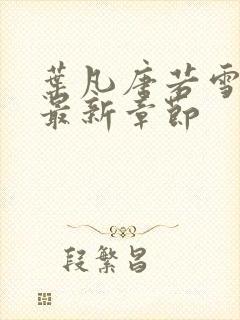 葉凡唐若雪
最新章節
段繁昌